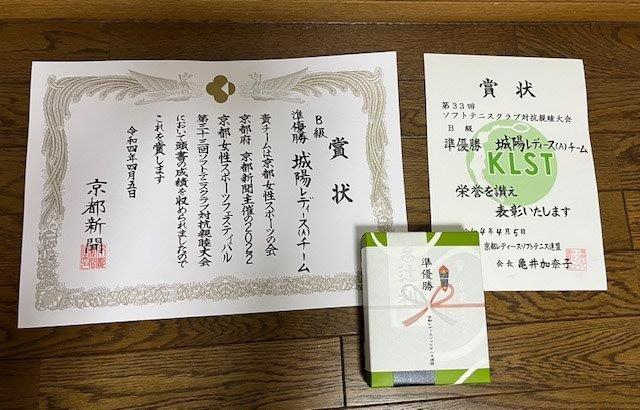 賞状
B級
準優勝 城陽レディース(A)チーム
貴チームは京都女性スポーツの会
京都府 京都新聞主催の2022
京都女性スポーツフェスティバル
第三十三回ソフトテニスクラブ対抗親睦大会
において頭書の成績を収められましたので
これを賞します
令和四年四月五日
京都新聞
賞状
第33回
ソフトテニスクラブ対抗親睦大会
B級
準優勝 城陽レディース(A)チーム
KLST
栄誉を讃え
表彰いたします
4年4月5日
京都レディースソフトテニス連盟
会長 亀井加奈子
準優勝
京都レディースソフトテニス連盟